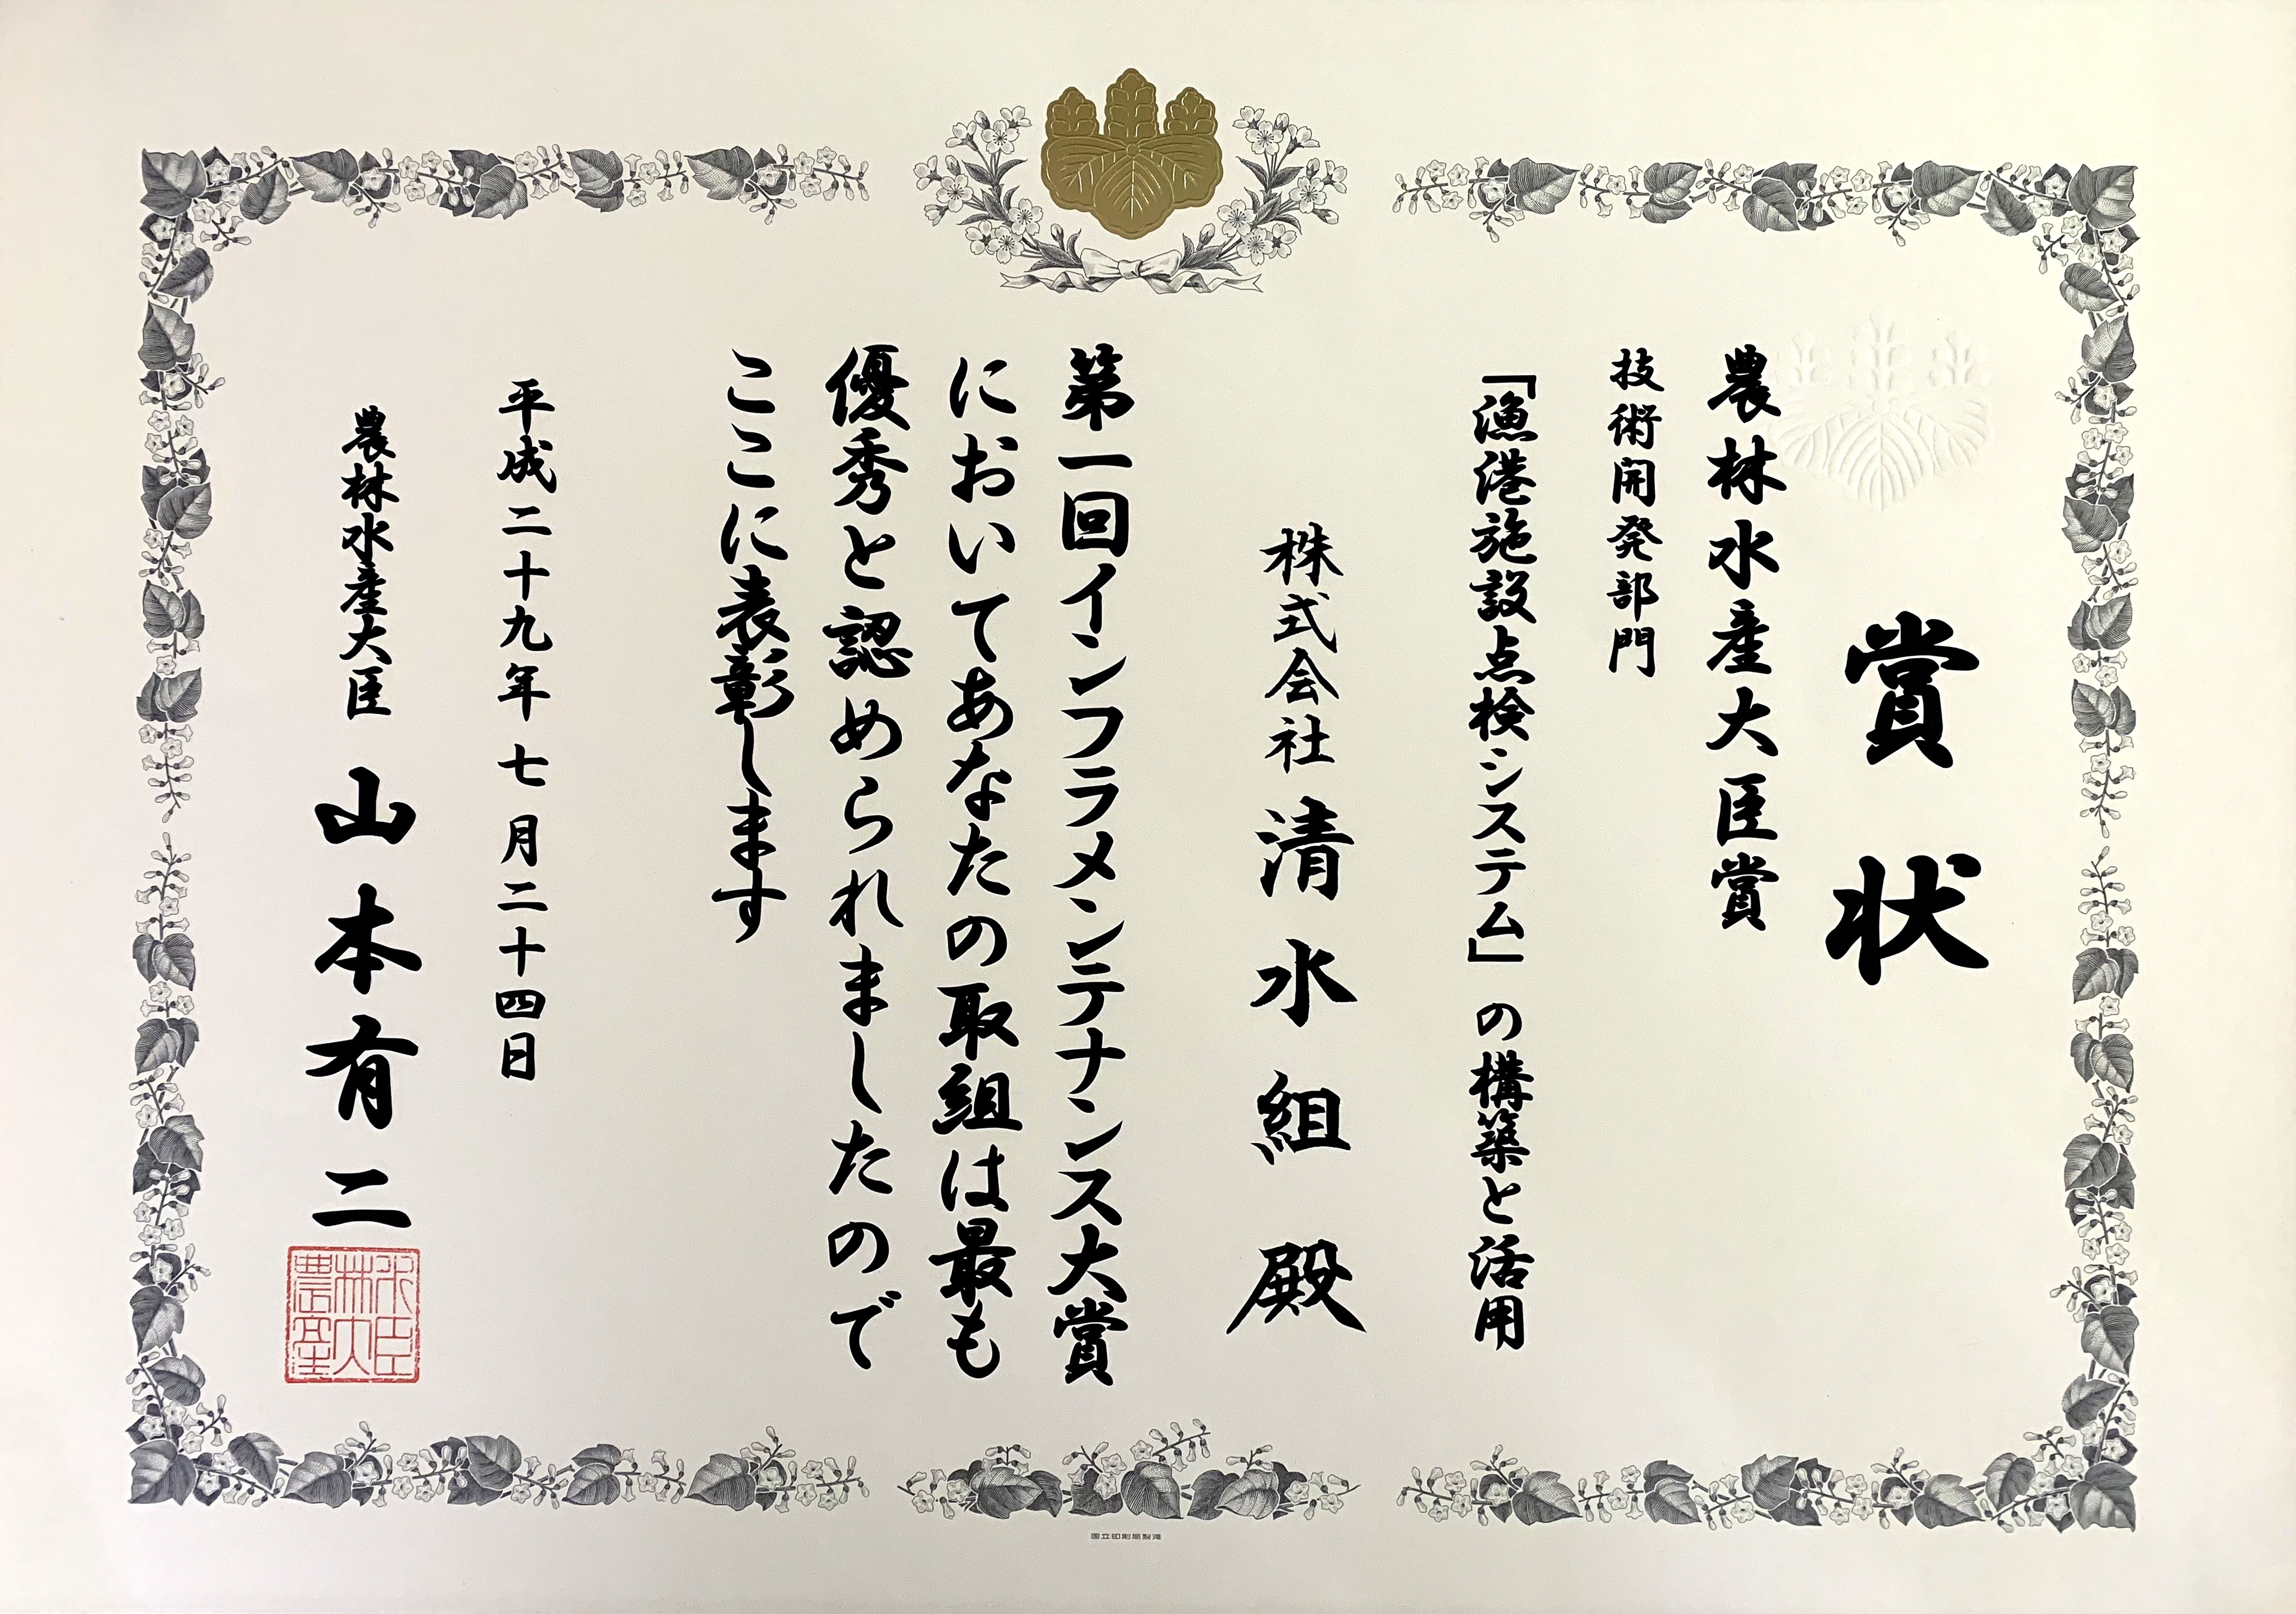 賞状
農林水産大臣賞
技術開発部門
「漁港施設点検システム」の構築と活用
株式会社 清水組 殿
第一回インフラメンテナンス大賞
においてあなたの取組は最も
優秀と認められましたので
ここに表彰します
平成二十九年七月二十四日
農林水産大臣 山本有二
国立印刷局製造